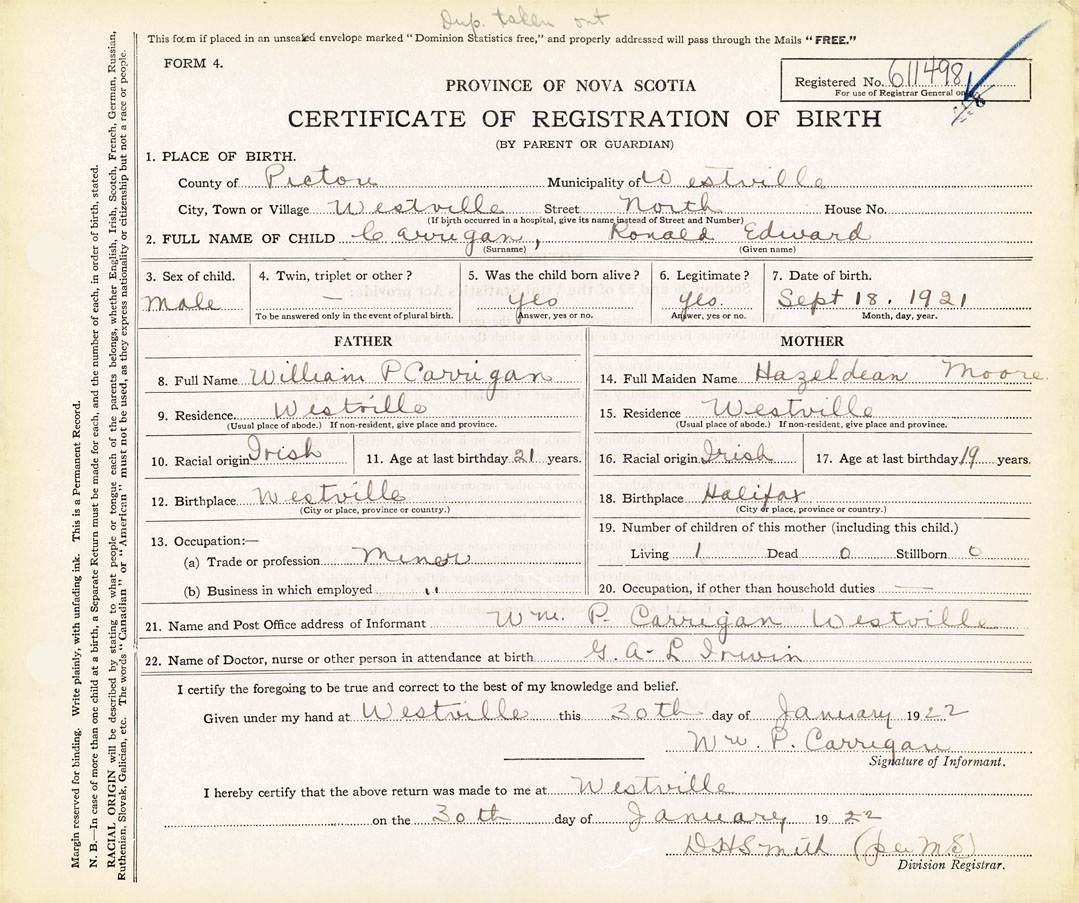 Dup. taken out
This form if placed in an unsealed envelope marked "Dominion Statistics free," and properly addressed will pass through the Mails "FREE."
FORM 4.
Registered No. 611498
For use of Registrar General only
PROVINCE OF NOVA SCOTIA
CERTIFICATE OF REGISTRATION OF BIRTH
(BY PARENT OR GUARDIAN)
1. PLACE OF BIRTH.
County of Pictou Municipality of Westville
City, Town or Village Westville Street North House No.
(If birth occurred in a hospital, give its name instead of Street and Number)
2. FULL NAME OF CHILD Carrigan, Ronald Edward
(Surname) (Given name)
3. Sex of child. 4. Twin, triplet or other? 5. Was the child born alive? 6. Legitimate? 7. Date of birth.
Male — yes yes. Sept 18. 1921
To be answered only in the event of plural birth. Answer, yes or no. Answer, yes or no. Month, day, year.
FATHER MOTHER
8. Full Name William P Carrigan 14. Full Maiden Name Hazeldean Moore.
9. Residence. Westville 15. Residence Westville
(Usual place of abode.) If non-resident, give place and province. (Usual place of abode.) If non-resident, give place and province.
10. Racial origin Irish 11. Age at last birthday 21 years. 16. Racial origin Irish 17. Age at last birthday 19 years.
12. Birthplace Westville 18. Birthplace Halifax
(City or place, province or country.) (City or place, province or country.)
13. Occupation:— 19. Number of children of this mother (including this child.)
(a) Trade or profession Miner Living 1 Dead 0 Stillborn 0
(b) Business in which employed " 20. Occupation, if other than household duties —
21. Name and Post Office address of Informant Wm. P. Carrigan Westville
22. Name of Doctor, nurse or other person in attendance at birth G. A. L Irwin
I certify the foregoing to be true and correct to the best of my knowledge and belief.
Given under my hand at Westville this 30th day of January 1922
Wm. P. Carrigan
Signature of Informant.
I hereby certify that the above return was made to me at Westville
on the 30th day of January 1922
D H Smith (per M.S.)
Division Registrar.
Margin reserved for binding. Write plainly, with unfading ink. This is a Permanent Record.
N. B.—In case of more than one child at a birth, a Separate Return must be made for each, and the number of each, in order of birth, stated.
RACIAL ORIGIN will be described by stating to what people or tongue each of the parents belongs, whether English, Irish, Scotch, French, German, Russian,
Ruthenian, Slovak, Galician, etc. The words "Canadian" or "American" must not be used, as they express nationality or citizenship but not a race or people.